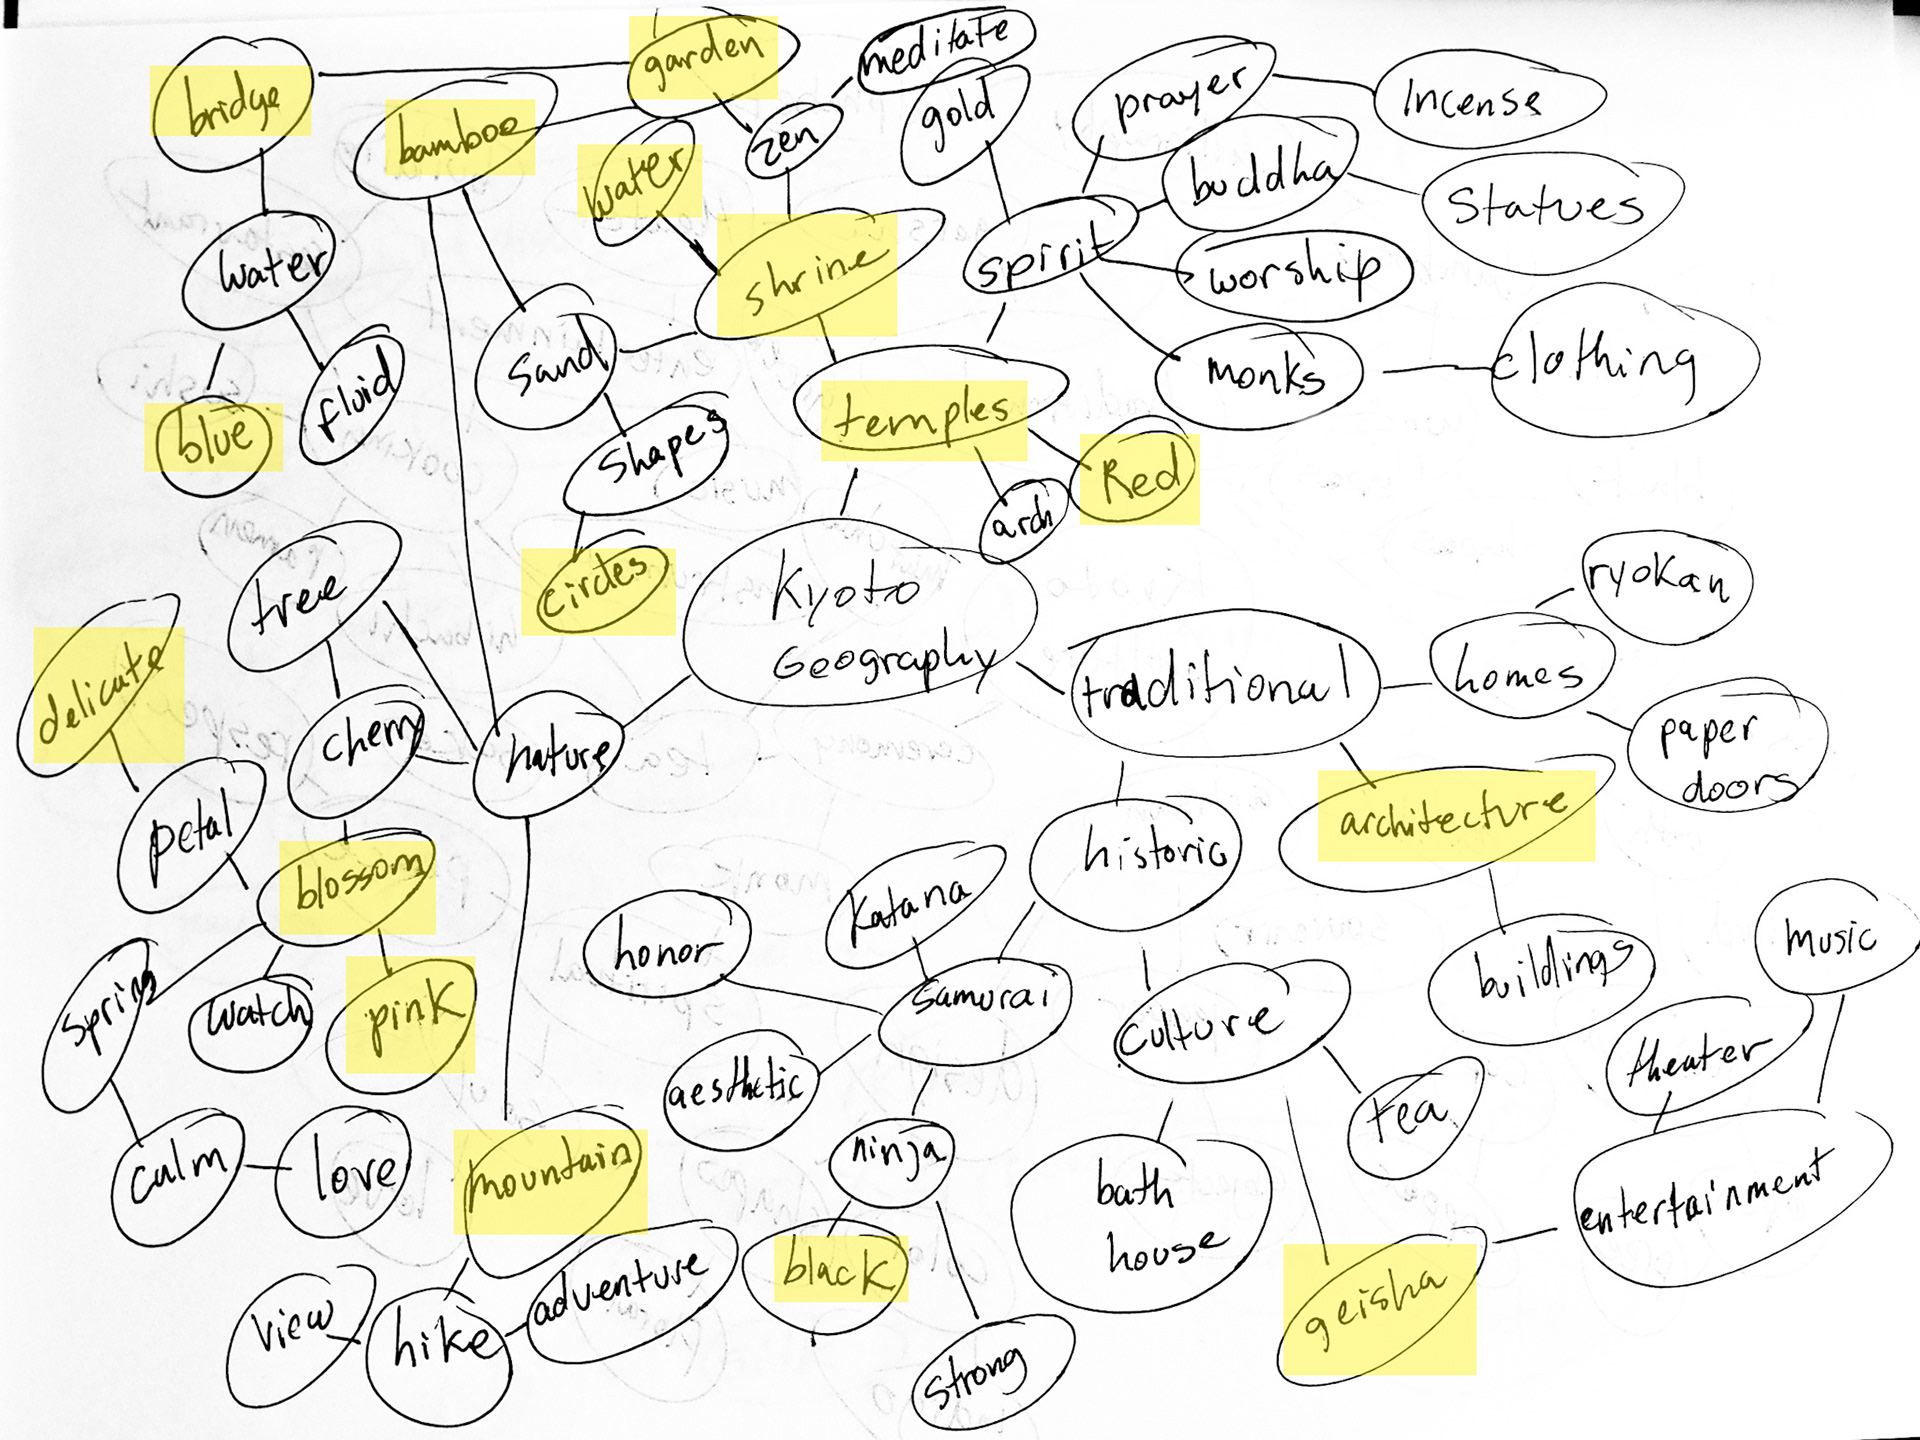 meditate
garden
bridge
gold
prayer
Incense
bamboo
zen
water
buddha
Statues
water
shrine
spirit
worship
Sand
monks
clothing
fluid
blue
shapes
temples
Red
arch
circles
tree
Kyoto
Geography
ryokan
delicate
traditional
homes
cherry
nature
paper
doors
petal
blossom
historic
architecture
Katana
honor
samurai
buildings
music
spring
watch
pink
culture
theater
aesthetic
tea
calm
love
mountain
ninja
bath
house
entertainment
view
hike
adventure
black
geisha
strong